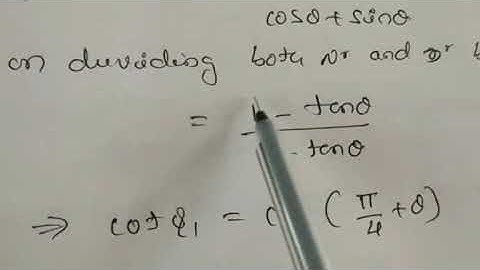 cosθ + sinθ
on deviding both Nr and Dr
= - tanθ
- tanθ
⇒ cot φ1 = c (π/4 + θ)